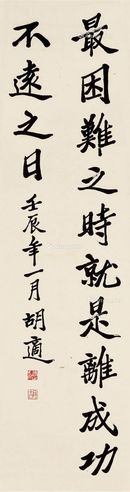 最困難之時就是離成功
不遠之日
壬辰年一月 胡適